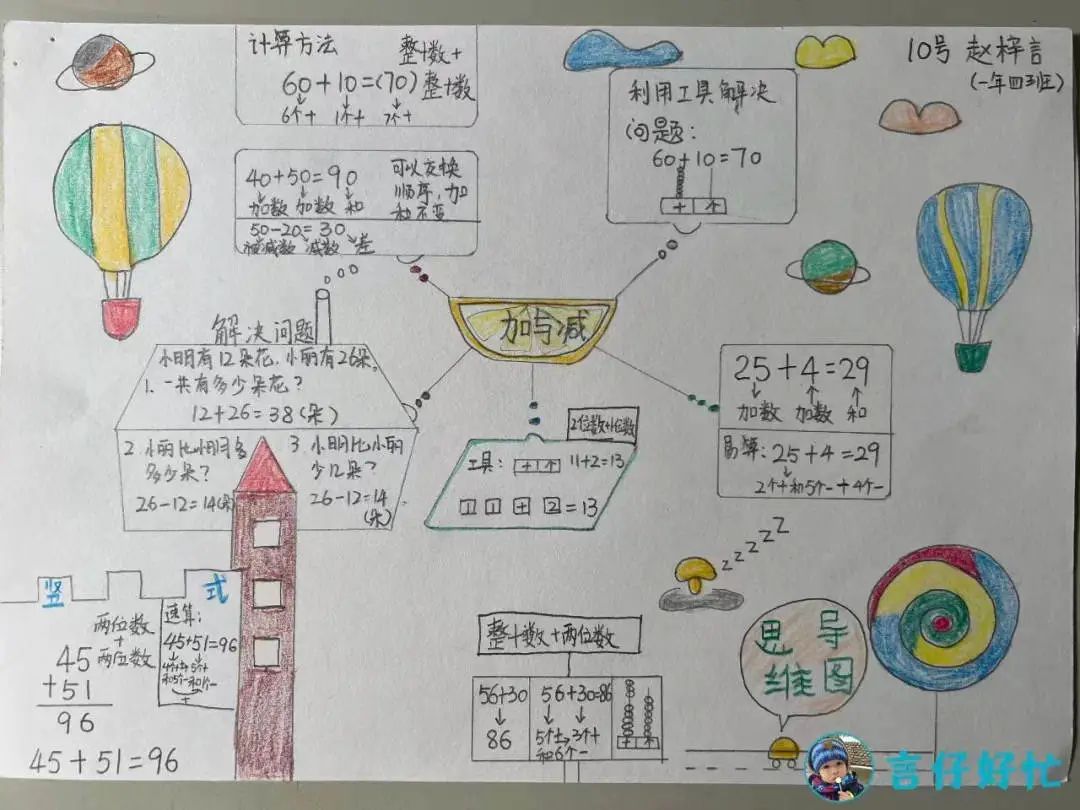 计算方法
整十数+
整十数
60+10=(70)
6个十 1个十 7个十
10号 赵梓言
(一年四班)
利用工具解决
问题:
60+10=70
十 个
40+50=90
加数 加数 和
可以交换
顺序,加
和不变
50-20=30
被减数 减数 差
加与减
解决问题
小明有12朵花,小丽有26朵。
1.一共有多少朵花?
12+26=38(朵)
2.小丽比小明多
多少朵?
26-12=14(朵)
3.小明比小丽
少几朵?
26-12=14
(朵)
25+4=29
加数 加数 和
易算:25+4=29
2个十和5个一+4个一
2位数+1位数
工具: 十 个 11+2=13
+ 2 =13
竖 式
两位数
+
两位数
45
+51
96
45+51=96
速算:
45+51=96
+
整十数+两位数
56+30
86
56+30=86
5个十+3个十
和6个一
十 个
zzzzz
思 导
维 图
言仔好忙